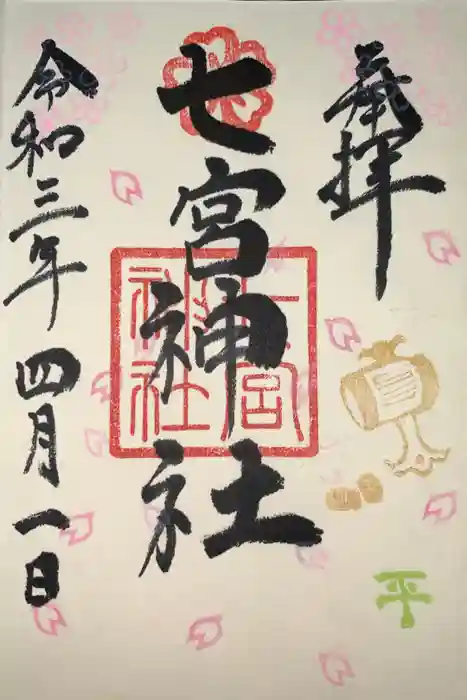 奉拝
七宮神社
令和三年四月一日
七宮神社
平